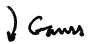 ↓ Gauss